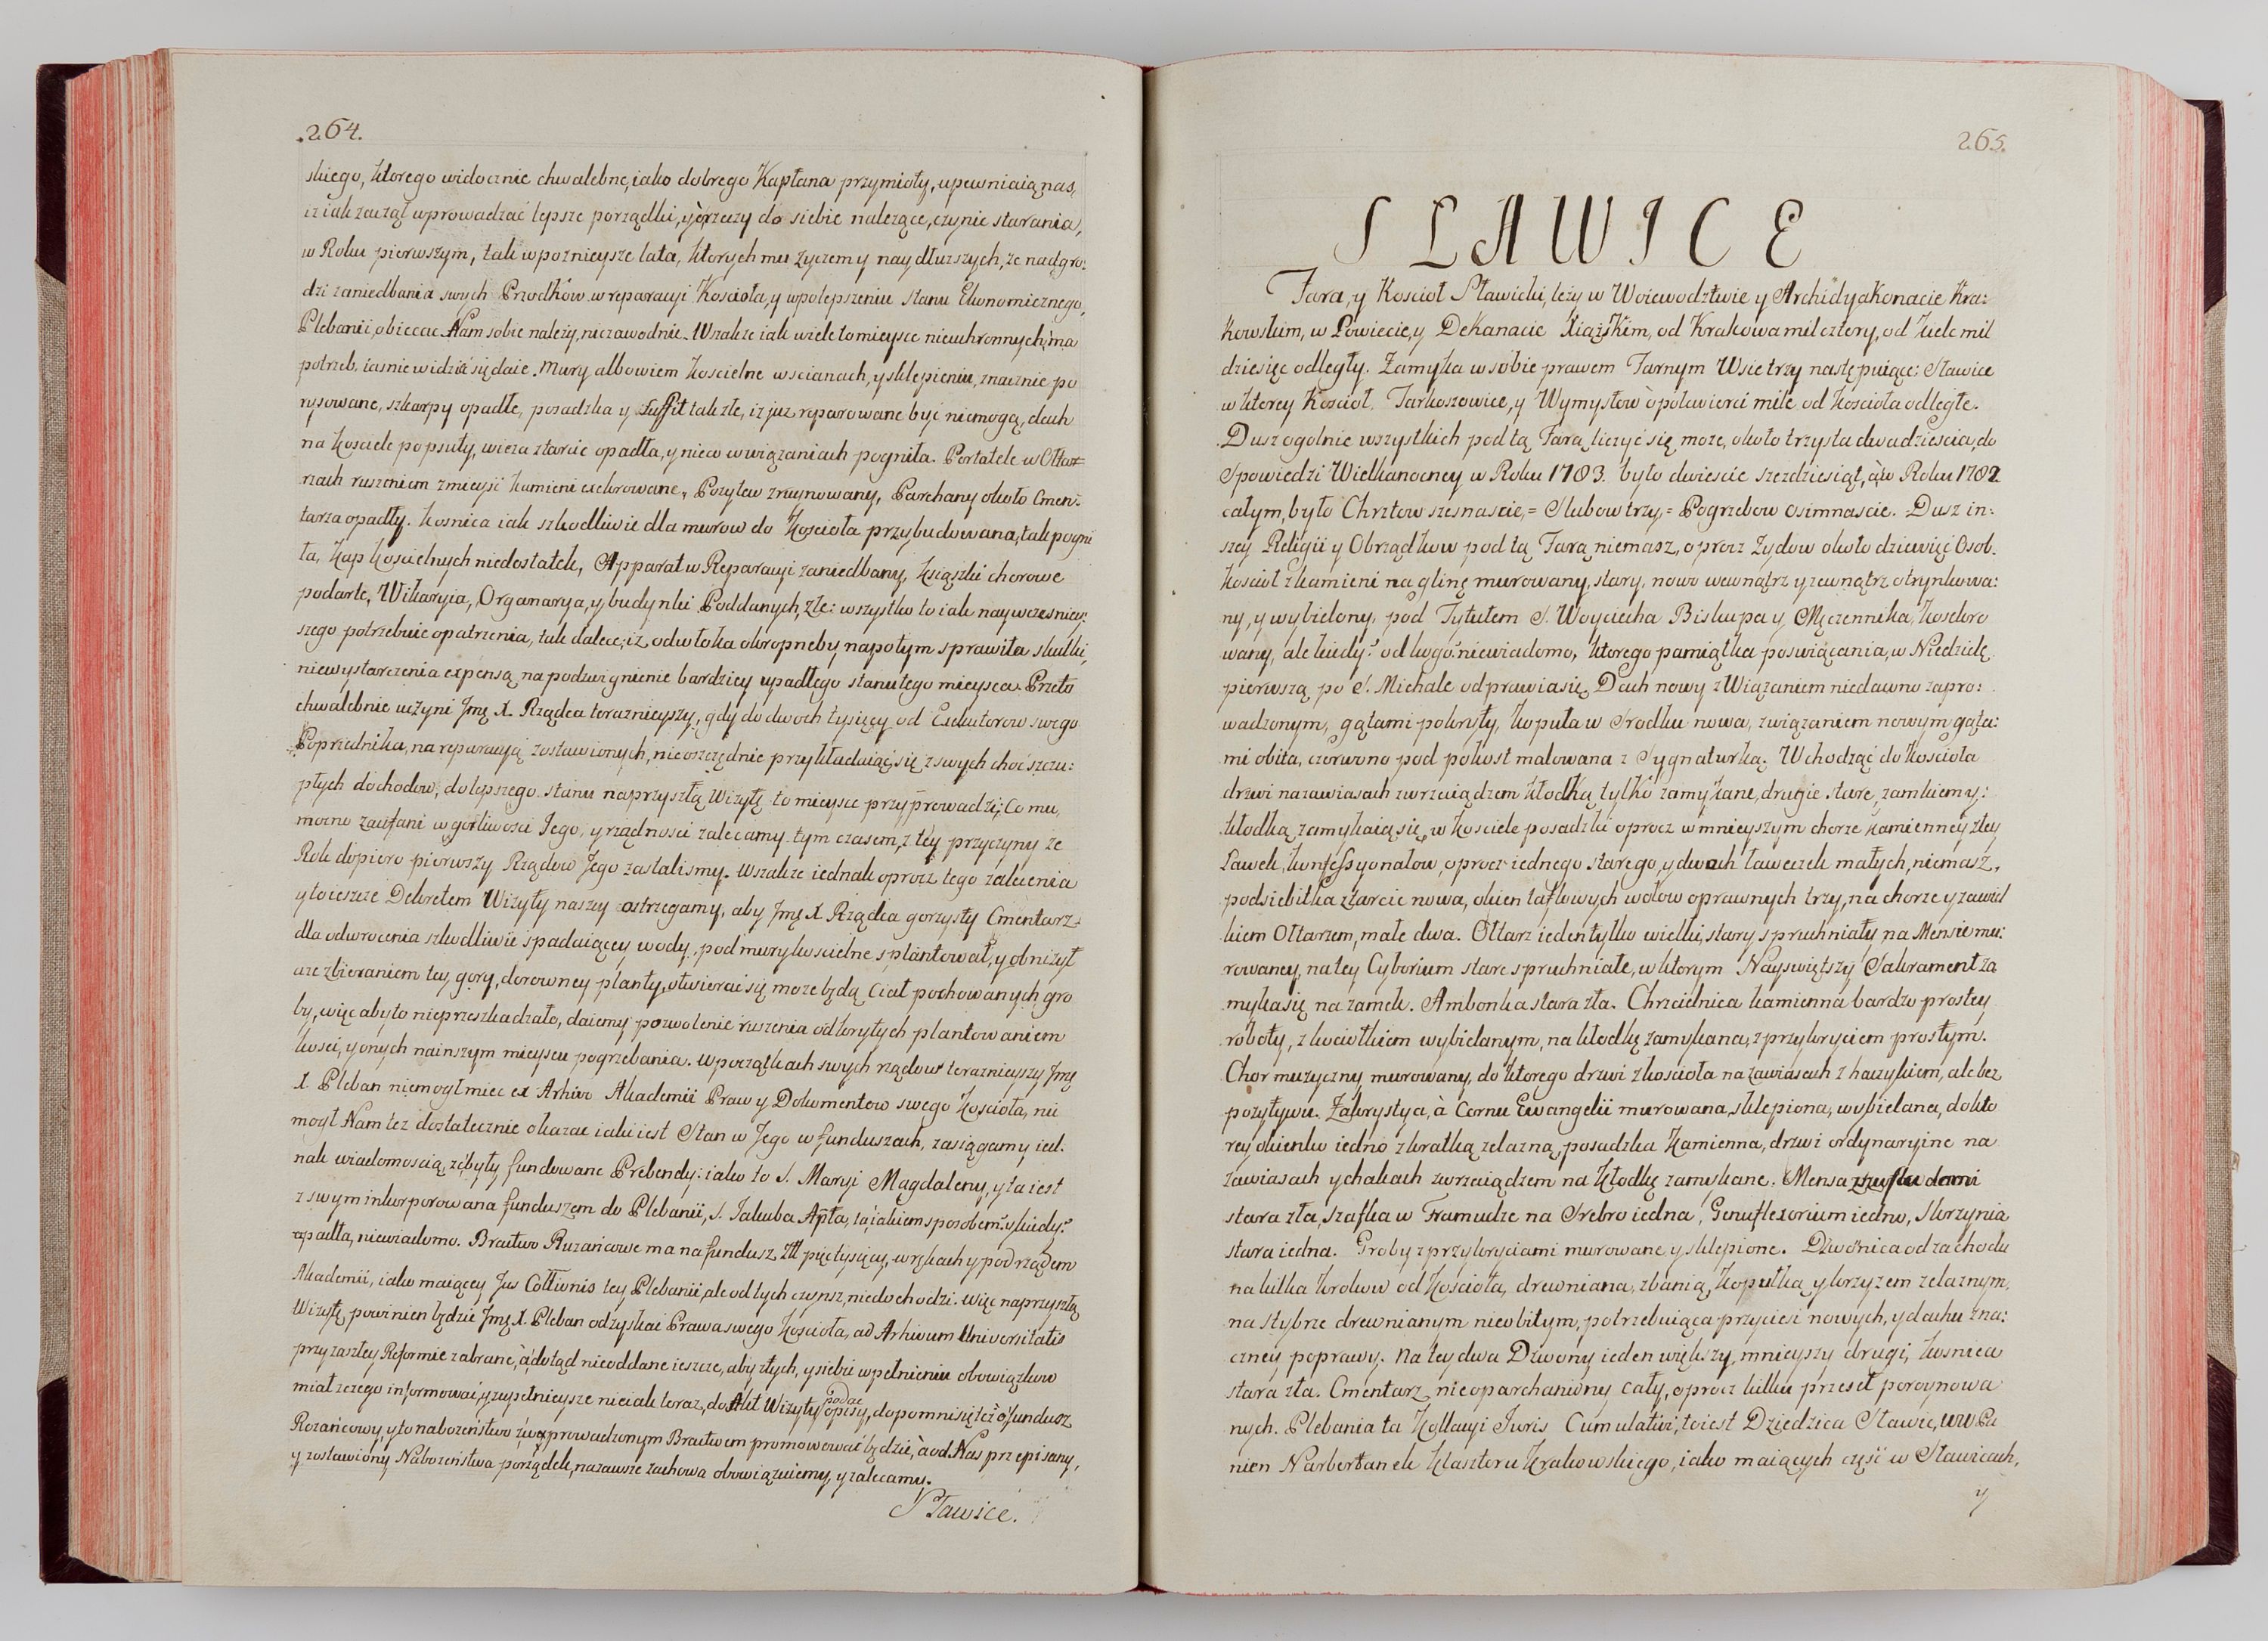 .264.
skiego, ktorego widocznie chwalebne, iako dobrego Kapłana przymioty, upewniaią nas,
iż iak zaczął wprowadzać lepsze porządki, y o rzeczy do siebie należące, czynic starania,
w Roku pierwszym, tak w poznieysze lata, ktorych mu życzemy naydłuzszych, że nadgro:
dzi zaniedbania swych Przodkow w reparacyi Kościoła, y w polepszeniu stanu Ekonomicznego,
Plebanii, obiecac Nam sobie należy, niezawodnie. Wszakże iak wiele to mieysce nieuchronnych ma
potrzeb, iasnie widzić się daie. Mury albowiem Koscielne w scianach, y sklepieniu, znacznie po
rysowane, szkarpy opadłe, posadzka y suffit tak złe, iż już reparowane być niemogą, dach
na Kosciele popsuty, wieża z tarcic opadła, y nieco w wiązaniach pogniła. Portatele w Ołta=
rzach ruszeniem z mieysć kamieni exekrowane, Pozytew zruynowany, Parchany około Cmen:
tarza opadły. Kosnica iak szkodliwie dla murow do Kosciola przybudowana, tak pogni
ła, Kap Koscielnych niedostatek, Apparat w Reparacyi zaniedbany, Książki chorowe
podarte, Wikaryia, Organarya, y budynki Poddanych, złe: wszystko to iak naywczesniey:
szego potrzebuie opatrzenia, tak dalece, iż odwłoka okropneby napotym sprawiła skutki,
niewystarczenia expensą na podzwignienie bardziey upadłego stanu tego mieysca. Przeto
chwalebnie uczyni Jmę X. Rządca teraznieyszy, gdy do dwoch tysięcy od Exekutorow swego
Poprzednika, na reparacyą zostawionych, nieoszczędnie przykładaiąc się z swych choć szczu:
płych dochodow, do lepszego stanu na przyszłą Wizytę to mieysce przyprowadzi; Co mu,
mocno zaufani w gorliwosci Jego, y rządnosci zalecamy tym czasem, z tey przyczyny że
Rok dopiero pierwszy Rządow Jego zastalismy. Wszakże iednak oprocz tego zalecenia
y to ieszcze Dekretem Wizyty naszey ostrzegamy, aby Jmę X Rządca gorzysty Cmentarz=
dla odwrocenia szkodliwie spadaiącey wody, pod mury koscielne splantował, y obniżył
aże zbieraniem tey gory, do rowney planty, otwierac się może będą Ciał pochowanych gro
by, więc aby to nieprzeszkadzało, daiemy pozwolenie ruszenia odkrytych plantowaniem
kosci, y onych na inszym mieyscu pogrzebania. W początkach swych rządow teraznieyszy Jmę
X Pleban niemogł miec ex Arhivo Akademii Praw y Dokumentow swego Kosciola, nie
mogł Nam też dostatecznie okazac iaki iest Stan w Jego w funduszach, zasiągamy ied:
nak wiadomoscią, że były fundowane Prebendy: iako to S. Maryi Magdaleny, y ta iest
z swym inkorporowana funduszem do Plebanii, S. Jakuba Apła, ta iakiem sposobem? y kiedy?
upadła, niewiadomo. Bractwo Rużańcowe ma na fundusz Złł pięć tysięcy, w rękach y pod rządem
Akademii, iako maiącey Jus Collationis tey Plebanii, ale od tych czynsz, niedochodzi. Więc na przyszłą
Wizytę, powinien będzie Jmę X. Pleban odzyskac Prawa swego Kosciola, ad Arhivum Universitatis
przy zaszłey Reformie zabrane, à dotąd nieoddane ieszcze, aby z tych, y siebie w pełnieniu obowiązkow
miał z czego informować, y zupełnieysze niciak teraz, do Akt Wizyty podac opisy, dopomni się też o fundusz
Rożańcowy, y to nabożeństwo z wprowadzonym Bractwem promowować będzie, à od Nas przepisany,
y zostawiony Nabożeństwa porządek, na zawsze zachowa obowiązuiemy, y zalecamy.
Sławice.
265.
SŁAWICE
Fara, y Kosciol Sławicki, leży w Woiewodztwie y Archidyakonacie Kra:
kowskim, w Powiecie, y Dekanacie Xiążskim, od Krakowa mil cztery, od Kielc mil
dziesięc odległy. Zamyka w sobie prawem Farnym Wsie trzy następuiące: Sławice
w ktorey Kosciol, Tarkoszowice, y Wymysłow o połcwierci mile od kosciola odległe.
Dusz ogolnie wszystkich pod tą Farą liczyć się może, około trzysta dwadziescia, do
Spowiedzi Wielkanocney w Roku 1783. było dwiescie szezdziesiąt, à w Roku 1782
całym, było Chrztow szesnascie, = Slubow trzy, = Pogrzebow osimnascie. Dusz in:
szey Religii y Obrządkow pod tą Farą niemasz, oprocz Zydow około dziewięć Osob.
Kosciol z kamieni na glinę murowany, stary, nowo wewnątrz y zewnątrz otynkowa:
ny, y wybielony, pod Tytułem S. Woyciecha Biskupa y Męczennika, konsekro
wany, ale kiedy? od kogo? niewiadomo, ktorego pamiątka poswiącania, w Niedzielę
pierwszą po S. Michale odprawia się, Dach nowy z Wiązaniem niedawno zapro:
wadzonym, gątami pokryty, kopuła w srodku nowa, z wiązaniem nowym gąta:
mi obita, czerwono pod pokost malowana z Sygnaturką. Wchodząc do kosciola
drzwi na zawiasach z wrzeciądzem kłodką tylko zamykane, drugie stare, zamkiem y:
kłodką zamykaią się, w kosciele posadzki oprocz w mnieyszym chorze kamienney złey
Ławek, konfessyonałow, oprocz iednego starego, y dwoch ławeczek małych, niemasz,
podsiebitka z tarcic nowa, okien taflowych w ołow oprawnych trzy, na chorze y za wiel
kiem Ołtarzem, małe dwa. Ołtarz ieden tylko wielki, stary spruchniały na Mensie mu:
rowaney, na tey Cyborium stare spruchniałe, w ktorym Nayswiętszy Sakrament za
myka się na zamek. Ambonka stara zła. Chrzcielnica kamienna bardzo prostey
roboty, z kociołkiem wybielanym, na kłodkę zamykana, z przykryciem prostym.
Chor muzyczny murowany, do ktorego drzwi z kosciola na zawiasach z haczykiem, ale bez
pozytywu. Zakrystya, à Cornu Ewangelii murowana, sklepiona, wybielana, do kto
rey okienko iedno z kratką zelazną, posadzka kamienna, drzwi ordynaryine na
zawiasach y hakach z wrzeciądzem na kłodkę zamykane. Mensa z szufladami
stara zła, szafka w Framudze na Srebro iedna, Genuflexorium iedno, Skrzynia
stara iedna. Groby z przykryciami murowane y sklepione. Dzwonica od zachodu
na kilka krokow od Kosciola, drewniana, z banią, kopułką y krzyzem zelaznym,
na stybrze drewnianym nieobitym, potrzebuiąca przyciesi nowych, y dachu zna:
czney poprawy. Na tey dwa Dzwony ieden większy, mnieyszy drugi, kosnica
stara zła. Cmentarz nieoparchaniony cały, oprocz kilku przeseł poroynowa
nych. Plebania ta Kollacyi Juris Cumulativi, to iest Dziedzica Sławic, WW Pa
nien Narbertanek Klasztoru Krakowskiego, iako maiących część w Sławicach,
y